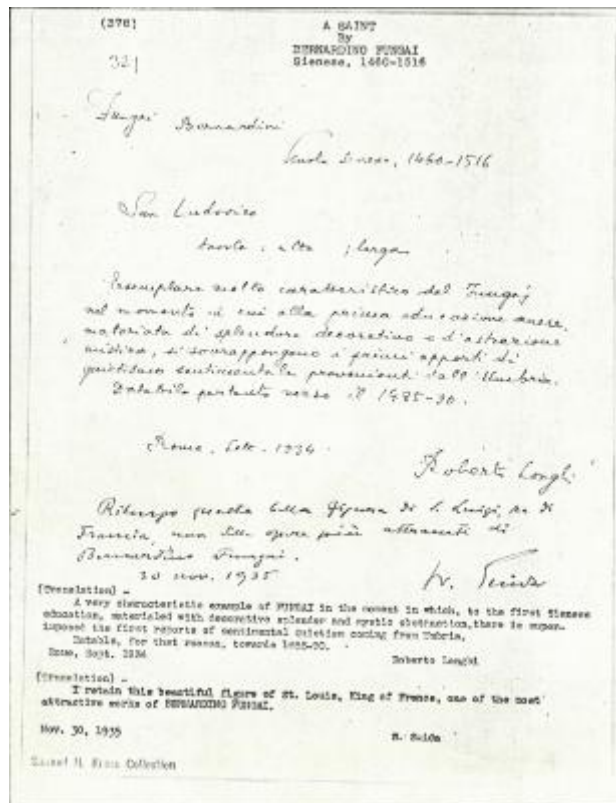 (378)
A SAINT
By
BERNARDINO FUNGAI
Sienese, 1460-1516
321
Fungai Bernardini
Scuola Senese, 1460-1516
San Ludovico
tavola. alta ; larga
Esemplare molto caratteristico del Fungaj
nel momento in cui alla prima educazione senese,
materiata di splendore decorativo e d'astrazione
mistica, si sovrappongono i primi apporti di
quietismo sentimentale provenienti dall'Umbria.
Databile pertanto verso il 1485-90.
Roma, Sett. 1934.
Roberto Longhi
Ritengo questa bella figura di S. Luigi, re di
Francia, una delle opere più attraenti di
Bernardino Fungai.
30 nov. 1935
W. Suida
(Translation) -
A very characteristic example of FUNGAI in the moment in which, to the first Sienese
education, materialed with decorative splendor and mystic abstraction, there is super-
imposed the first reports of sentimental quietism coming from Umbria.
Datable, for that reason, towards 1485-90.
Rome, Sept. 1934
Roberto Longhi
(Translation) -
I retain this beautiful figure of St. Louis, King of France, one of the most
attractive works of BERNARDINO FUNGAI.
Nov. 30, 1935
Suida
Samuel H. Kress Collection